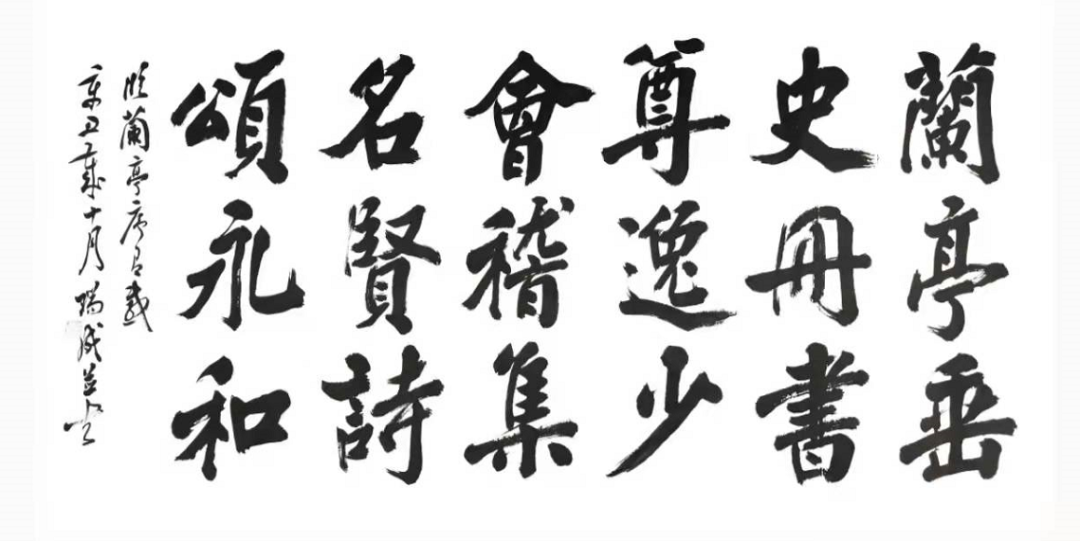 蘭亭垂
史冊書
尊逸少
會稽集
名賢詩
頌永和
臨蘭亭序有感
辛丑歲十月瑞成並書